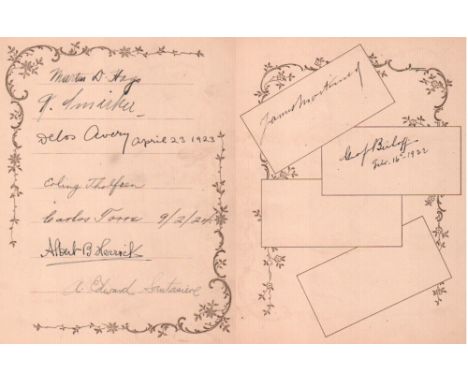 Martin D. Hago
P. Smirka
Delos Avery April 23 1923
Carlos Torre 9/2/24
Albert B Herrick
A Edward Santasiere
James Mortimer
Geo. J Birloff
Feb. 16th 1922